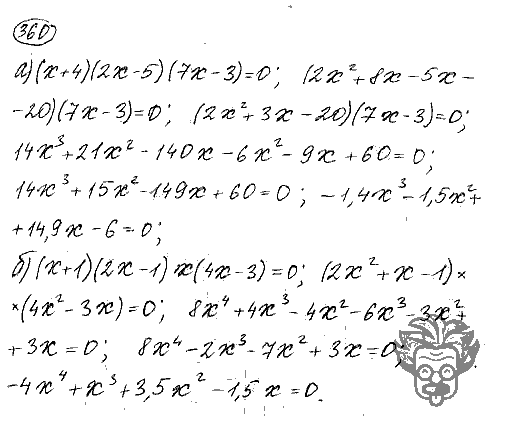 360
а) (x+4)(2x-5)(7x-3)=0; (2x²+8x-5x-
-20)(7x-3)=0; (2x²+3x-20)(7x-3)=0;
14x³+21x²-140x-6x²-9x+60=0;
14x³+15x²-149x+60=0; -1,4x³-1,5x²+
+14,9x-6=0;
б) (x+1)(2x-1)x(4x-3)=0; (2x²+x-1)×
×(4x²-3x)=0; 8x⁴+4x³-4x²-6x³-3x²+
+3x=0; 8x⁴-2x³-7x²+3x=0;
-4x⁴+x³+3,5x²-1,5x=0.